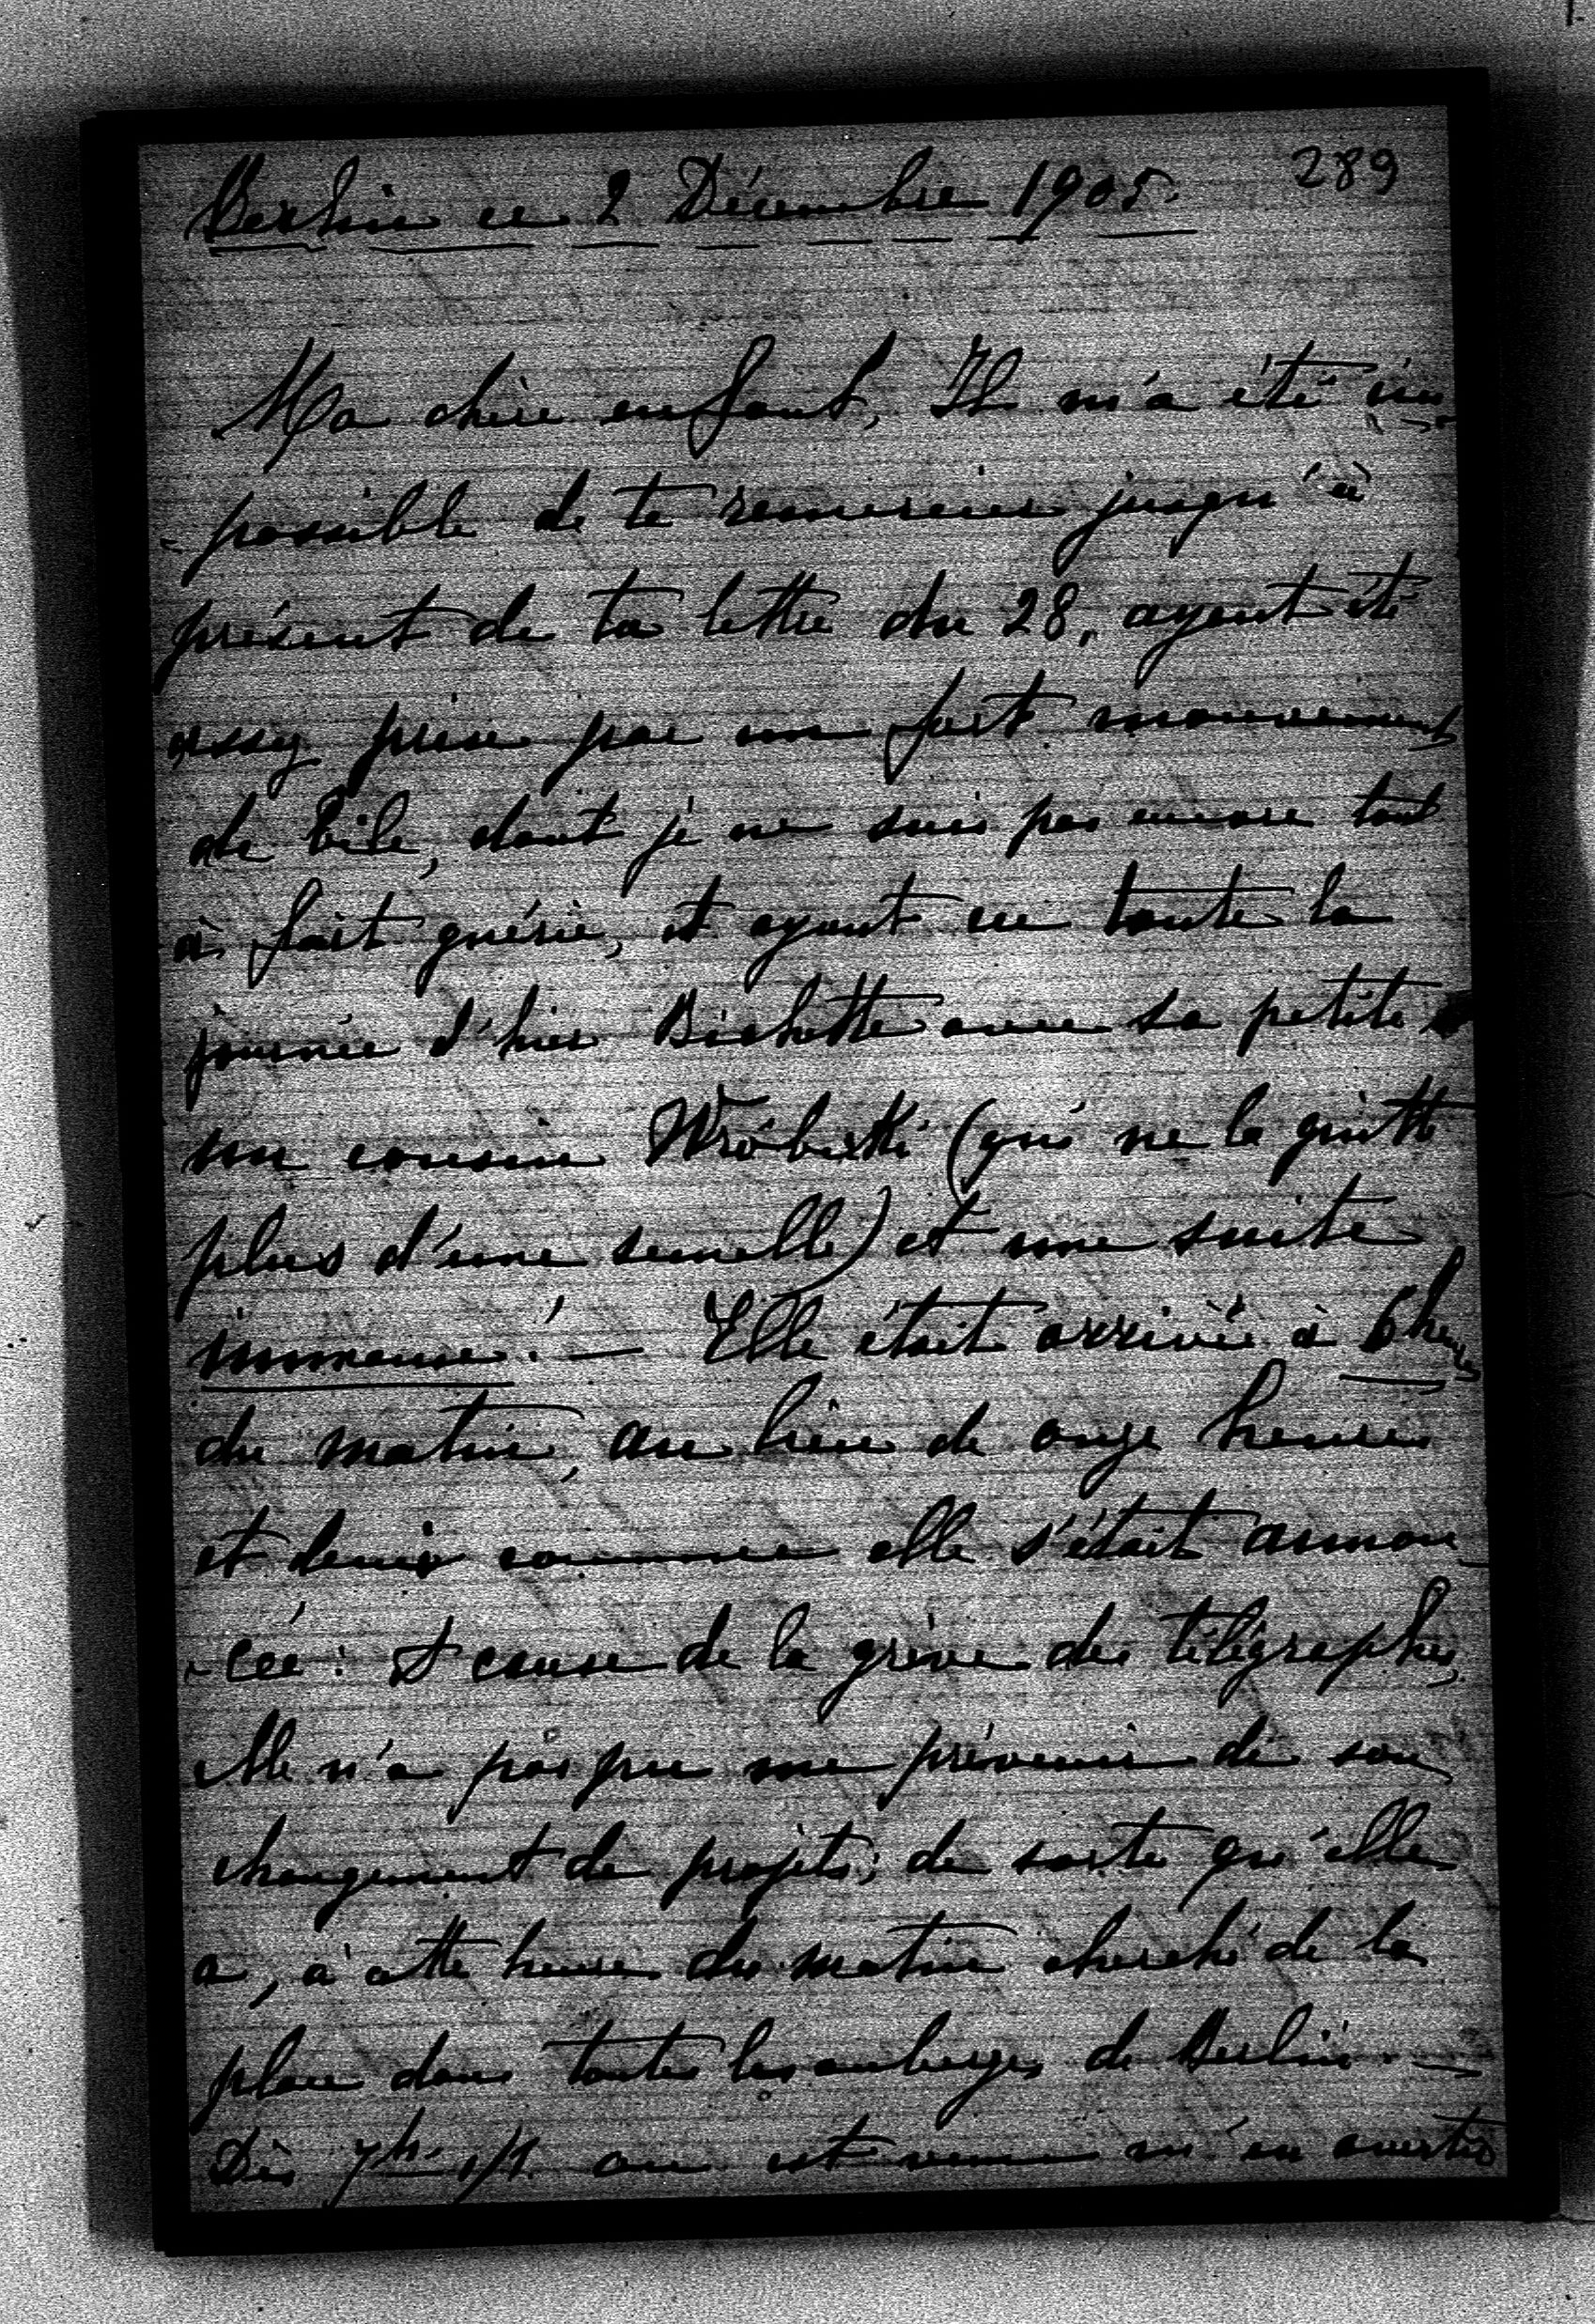 289
Berlin ce 2 Décembre 1905.
Ma chère enfant, Il m'a été im-
-possible de te remercier jusqu'à
présent de ta lettre du 28, ayant été
assez prise par un fort mouvement
de bile, dont je ne suis pas encore tout
à fait guérie, et ayant eu toute la
journée d'hier Bichette avec sa petite
son cousin Wróbleski (qui ne la quitte
plus d'une semelle) et une suite
immense! — Elle était arrivée à 6 heures
du matin, au lieu de onze heures
et demie comme elle s'était annon-
-cée: A cause de la grève des télégraphes,
elle n'a pas pu me prévenir de son
changement de projets; de sorte qu'elle
a, à cette heure du matin cherché de la
place dans toutes les auberges de Berlin. —
Dès 7 h. on est venu m'en avertir